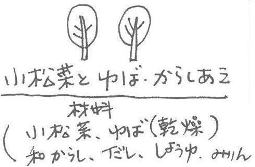 小松菜とゆば・からしあえ
材料
(小松菜、ゆば(乾燥)
和からし、だし、しょうゆ、みりん